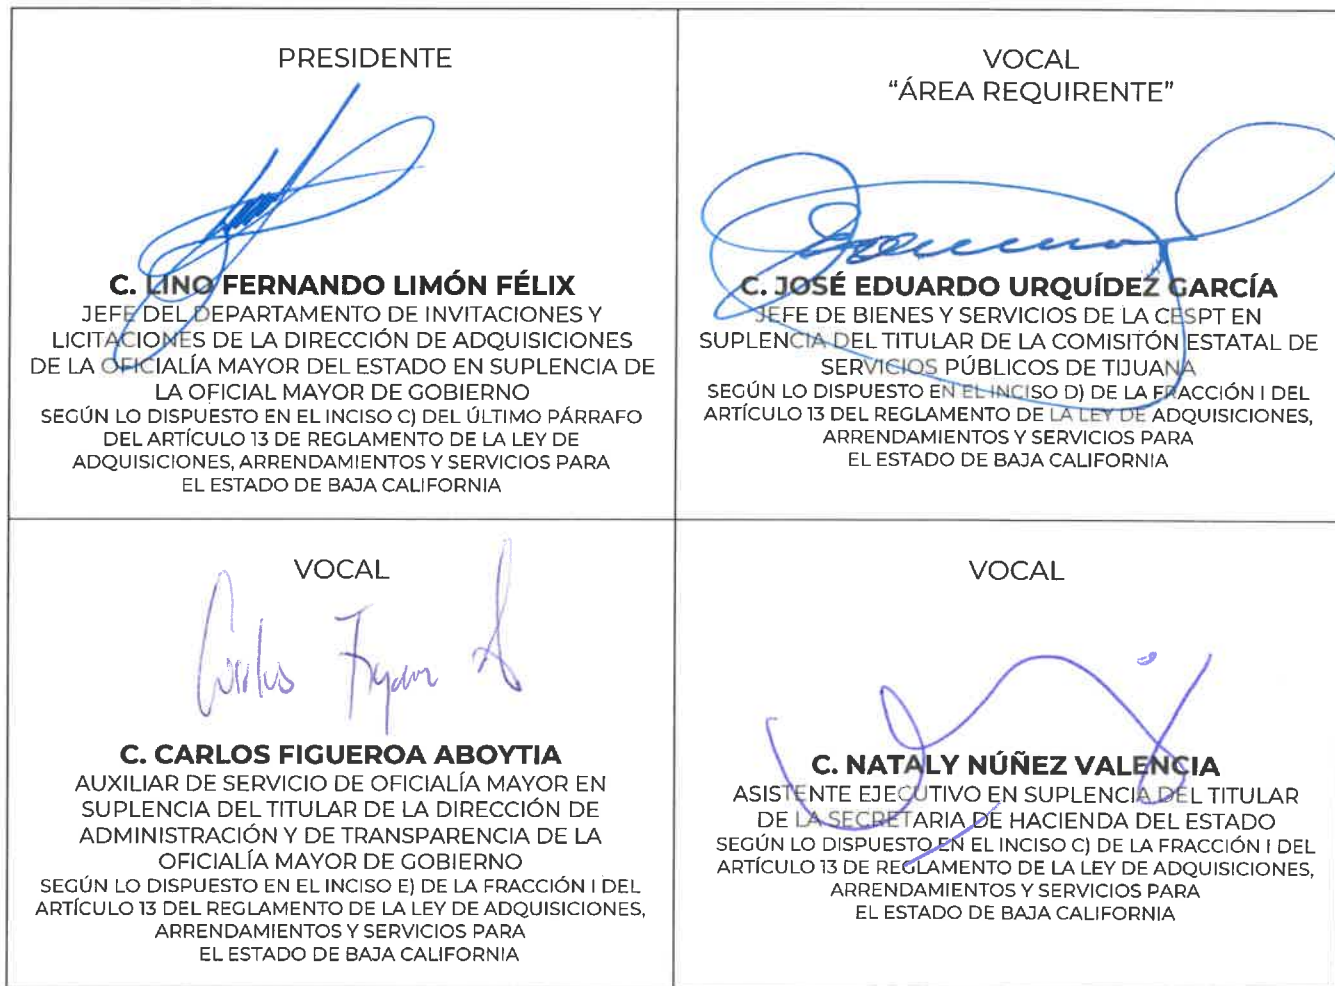 PRESIDENTE
C. LINO FERNANDO LIMÓN FÉLIX
JEFE DEL DEPARTAMENTO DE INVITACIONES Y
LICITACIONES DE LA DIRECCIÓN DE ADQUISICIONES
DE LA OFICIALÍA MAYOR DEL ESTADO EN SUPLENCIA DE
LA OFICIAL MAYOR DE GOBIERNO
SEGÚN LO DISPUESTO EN EL INCISO C) DEL ÚLTIMO PÁRRAFO
DEL ARTÍCULO 13 DE REGLAMENTO DE LA LEY DE
ADQUISICIONES, ARRENDAMIENTOS Y SERVICIOS PARA
EL ESTADO DE BAJA CALIFORNIA
VOCAL
“ÁREA REQUIRENTE”
C. JOSÉ EDUARDO URQUÍDEZ GARCÍA
JEFE DE BIENES Y SERVICIOS DE LA CESPT EN
SUPLENCIA DEL TITULAR DE LA COMISITÓN ESTATAL DE
SERVICIOS PÚBLICOS DE TIJUANA
SEGÚN LO DISPUESTO EN EL INCISO D) DE LA FRACCIÓN I DEL
ARTÍCULO 13 DEL REGLAMENTO DE LA LEY DE ADQUISICIONES,
ARRENDAMIENTOS Y SERVICIOS PARA
EL ESTADO DE BAJA CALIFORNIA
VOCAL
Carlos
C. CARLOS FIGUEROA ABOYTIA
AUXILIAR DE SERVICIO DE OFICIALÍA MAYOR EN
SUPLENCIA DEL TITULAR DE LA DIRECCIÓN DE
ADMINISTRACIÓN Y DE TRANSPARENCIA DE LA
OFICIALÍA MAYOR DE GOBIERNO
SEGÚN LO DISPUESTO EN EL INCISO E) DE LA FRACCIÓN I DEL
ARTÍCULO 13 DEL REGLAMENTO DE LA LEY DE ADQUISICIONES,
ARRENDAMIENTOS Y SERVICIOS PARA
EL ESTADO DE BAJA CALIFORNIA
VOCAL
C. NATALY NÚÑEZ VALENCIA
ASISTENTE EJECUTIVO EN SUPLENCIA DEL TITULAR
DE LA SECRETARIA DE HACIENDA DEL ESTADO
SEGÚN LO DISPUESTO EN EL INCISO C) DE LA FRACCIÓN I DEL
ARTÍCULO 13 DE REGLAMENTO DE LA LEY DE ADQUISICIONES,
ARRENDAMIENTOS Y SERVICIOS PARA
EL ESTADO DE BAJA CALIFORNIA